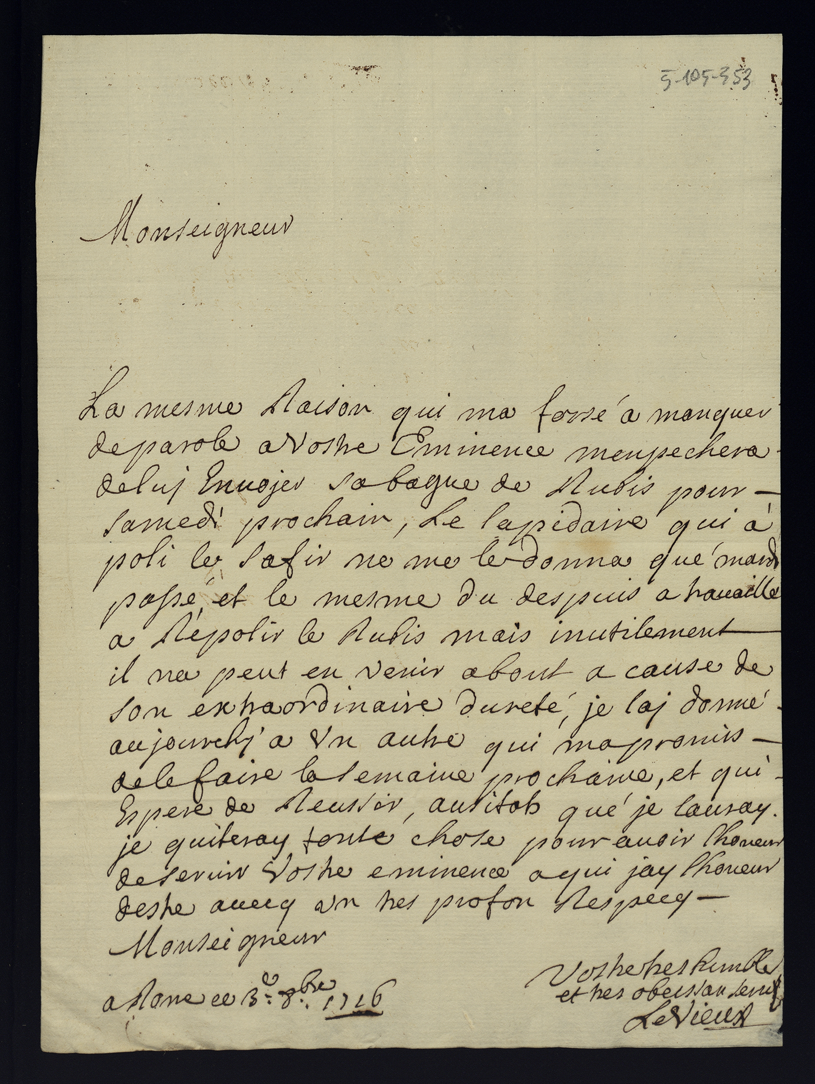 5-105-353
Monseigneur
La mesme Raison qui ma forsé a manquer
de parole a Vostre Eminence menpechera
de luj Envojer sa bague de Rubis pour
samedi prochain, Le lapidaire qui à
poli le Safir ne me le donna qué mardi
passe, et le mesme du despuis a travaille
a Répolir le Rubis mais inutilement
il na peut en venir about a cause de
son extraordinaire dureté, je laj donné
aujourdhj a Vn autre qui ma promis
de le faire la semaine prochaine, et qui
Espere de Reussir, ausitob qué je lauray.
je quiteray toute chose pour avoir lhoneur
de servir Vostre eminence a qui jay lhoneur
destre avecq un tres profon Respecq
Monseigneur
a Rome ce 3e: 8bre: 1716
Vostre tres humble
et tres obeissan
Le Vieux